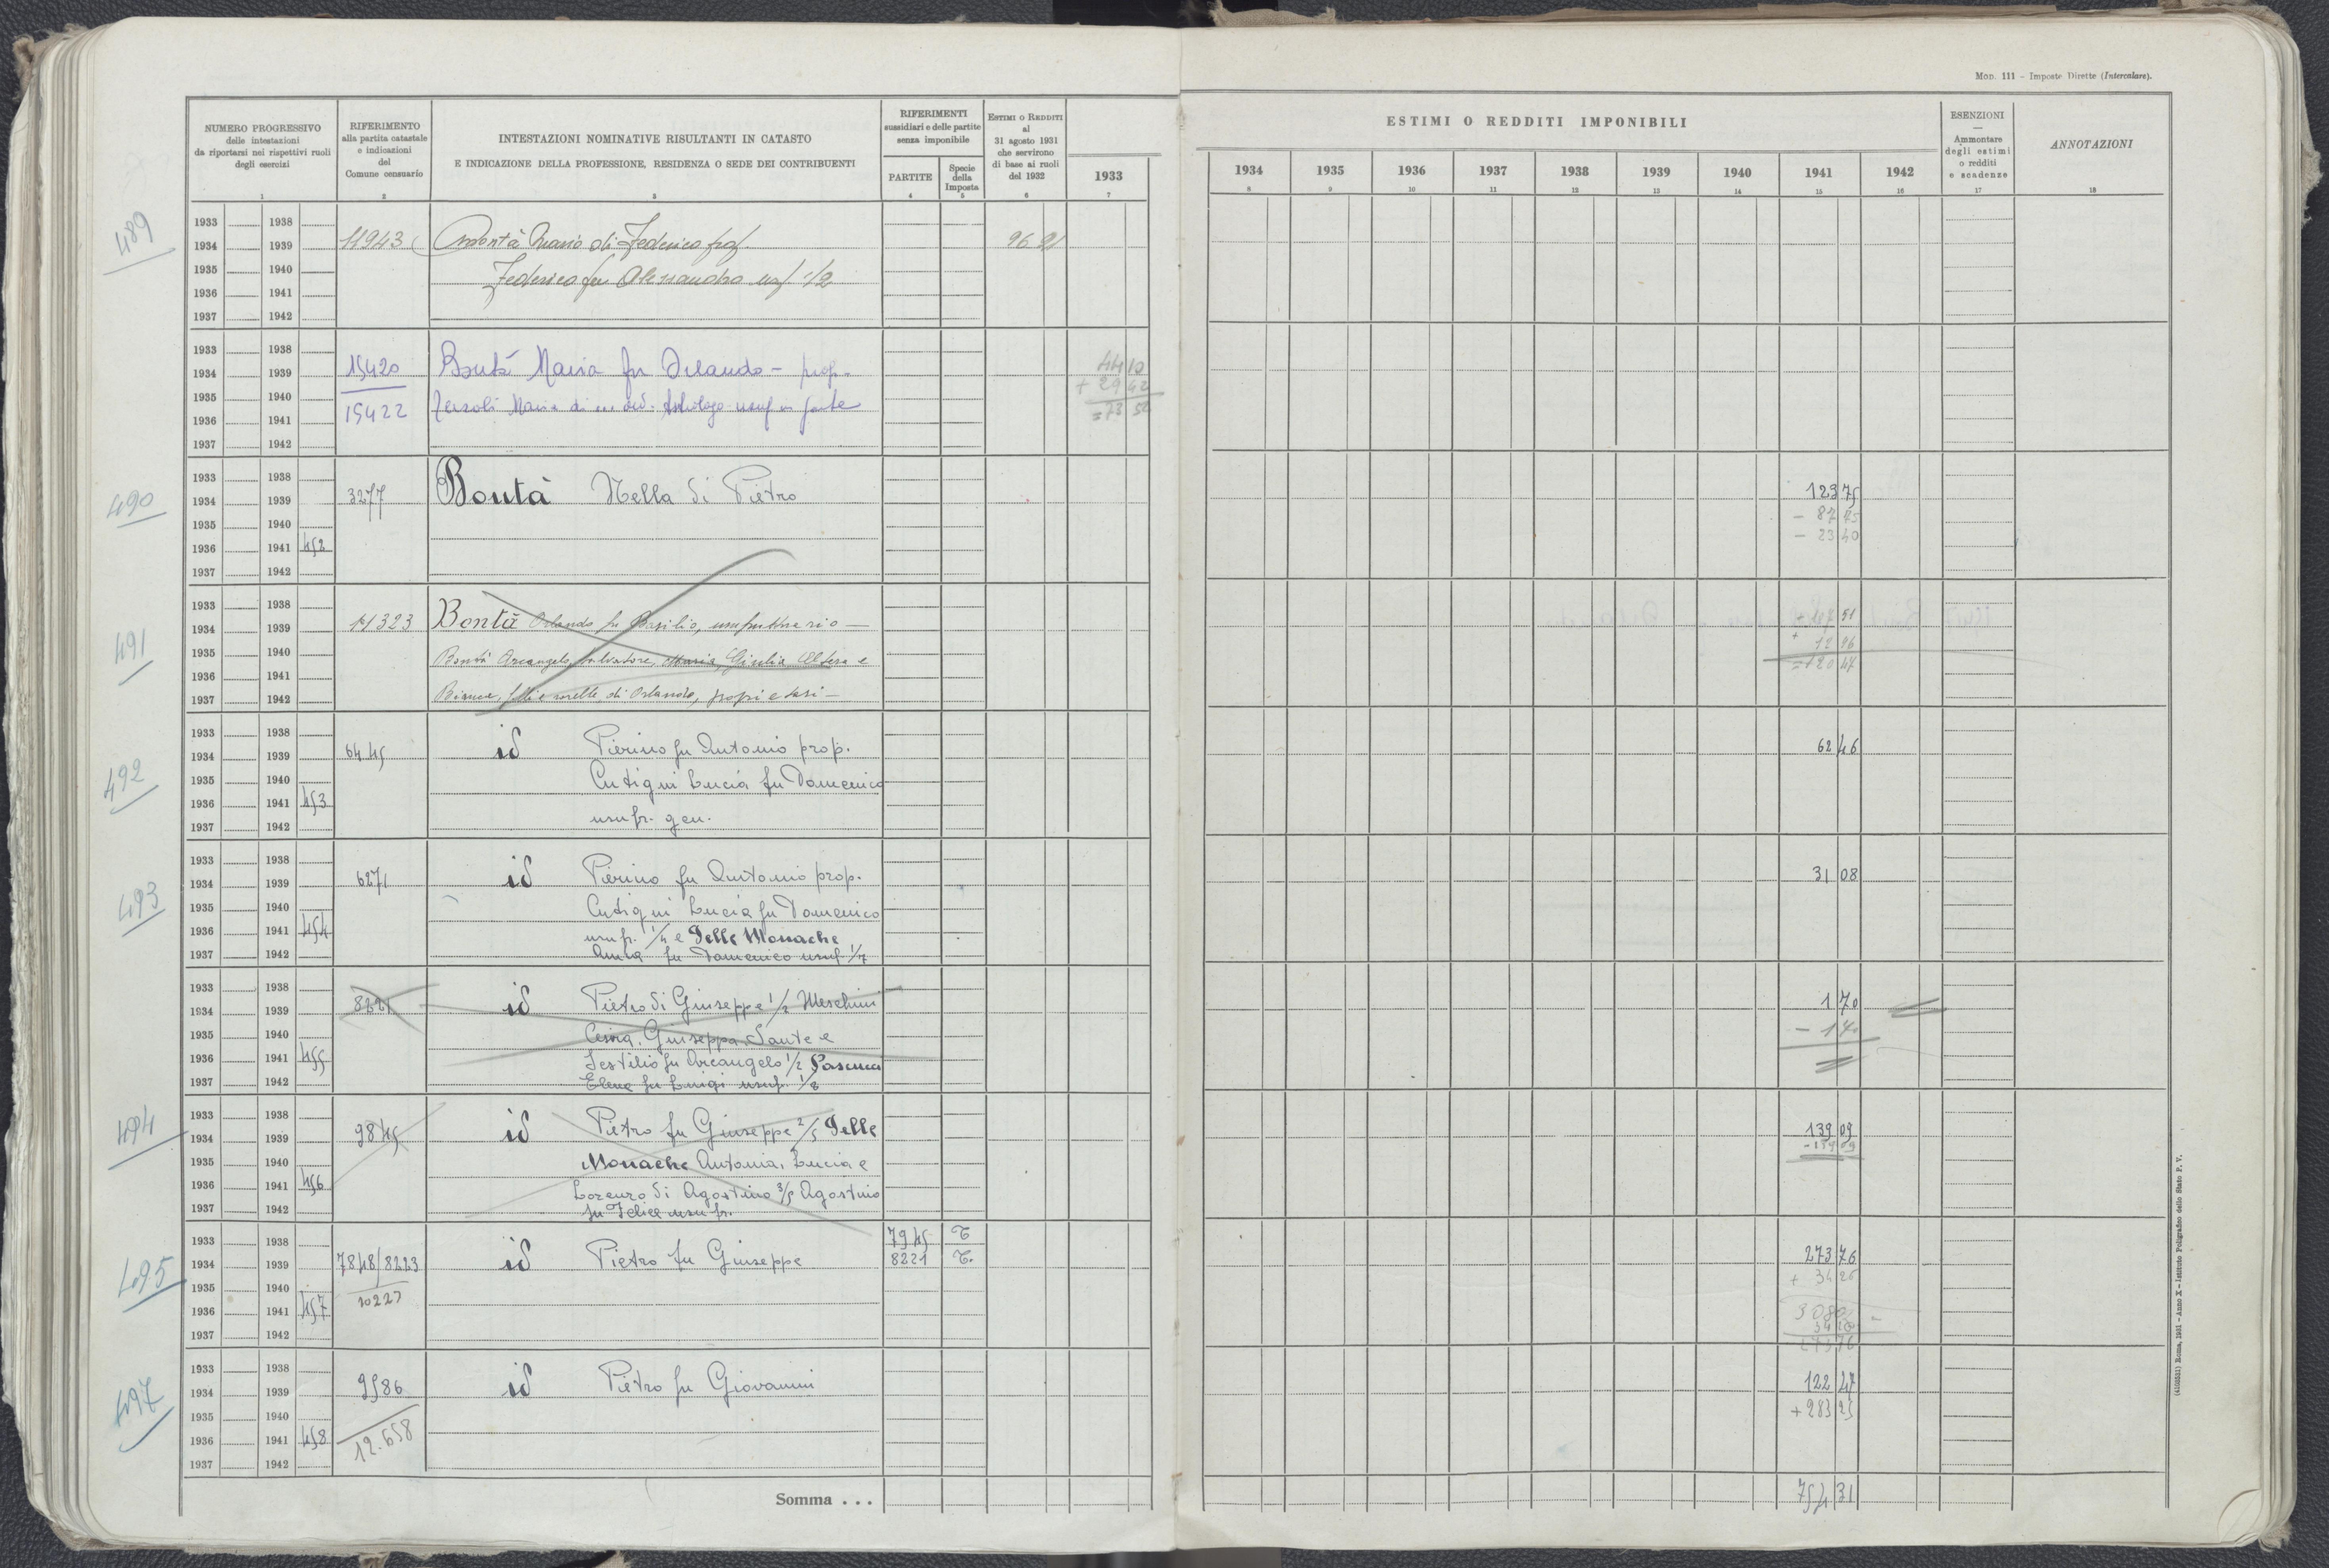 Mod. 111 - Imposte Dirette (Intercalare).
NUMERO PROGRESSIVO
delle intestazioni
da riportarsi nei rispettivi ruoli
degli esercizi
RIFERIMENTO
alla partita catastale
e indicazioni
del
Comune censuario
INTESTAZIONI NOMINATIVE RISULTANTI IN CATASTO
E INDICAZIONE DELLA PROFESSIONE, RESIDENZA O SEDE DEI CONTRIBUENTI
RIFERIMENTI
sussidiari e delle partite
senza imponibile
PARTITE
Specie
della
Imposta
Estimi o Redditi
al
31 agosto 1931
che servirono
di base ai ruoli
del 1932
1933
ESTIMI O REDDITI IMPONIBILI
1934 1935 1936 1937 1938 1939 1940 1941 1942
ESENZIONI
—
Ammontare
degli estimi
o redditi
e scadenze
ANNOTAZIONI
1 2 3 4 5 6 7 8 9 10 11 12 13 14 15 16 17 18
489
1933 1938
1934 1939 11943 Bontà Mario di Federico prop. 96 91
1935 1940 Federico fu Alessandro usuf 1/2
1936 1941
1937 1942
1933 1938
1934 1939 15420 Bontà Maria fu Orlando - prop. 44 10
1935 1940 + 29 42
1936 1941 15422 Maria di ... usuf in parte = 73 52
1937 1942
490
1933 1938
1934 1939 3277 Bontà Nella di Pietro 123 75
1935 1940 - 87 75
1936 1941 452 - 23 40
1937 1942
491
1933 1938
1934 1939 11323 Bontà Orlando fu Basilio, usufruttuario — + 107 51
1935 1940 Bontà Arcangelo, Salvatore, Maria, Giulia, Altera e + 12 96
1936 1941 = 120 47
1937 1942 Bianca, f.lli e sorelle di Orlando, proprietari —
492
1933 1938
1934 1939 6445 id Pierino fu Antonio prop. 62 46
1935 1940 Cutigni Lucia fu Domenico
1936 1941 453
1937 1942 usufr. gen.
493
1933 1938
1934 1939 6271 id Pierino fu Antonio prop. 31 08
1935 1940 Cutigni Lucia fu Domenico
1936 1941 454 usufr. 1/4 e Delle Monache
1937 1942 Anna fu Domenico usuf 1/7
1933 1938
1934 1939 8221 id Pietro di Giuseppe 1/2 Meschini 1 70
1935 1940 Giuseppa Sante e - 1 70
1936 1941 455 Sestilio fu Arcangelo 1/2 Pascucci
1937 1942 Elena fu Luigi usuf. 1/8
494
1933 1938
1934 1939 9845 id Pietro fu Giuseppe 2/5 Delle 139 09
1935 1940 Monache Antonia, Lucia e - 139 09
1936 1941 456 Lorenzo di Agostino 3/5 Agostino
1937 1942 fu Felice usufr.
495
1933 1938 7945 T
1934 1939 7848/8223 id Pietro fu Giuseppe 8221 T. 273 76
1935 1940 10223 + 34 26
1936 1941 457
1937 1942 273 76
497
1933 1938
1934 1939 9586 id Pietro fu Giovanni 122 47
1935 1940 + 283 25
1936 1941 458 12.658
1937 1942
Somma . . . 754 31
Roma, 1931 - Anno X - Istituto Poligrafico dello Stato P. V.